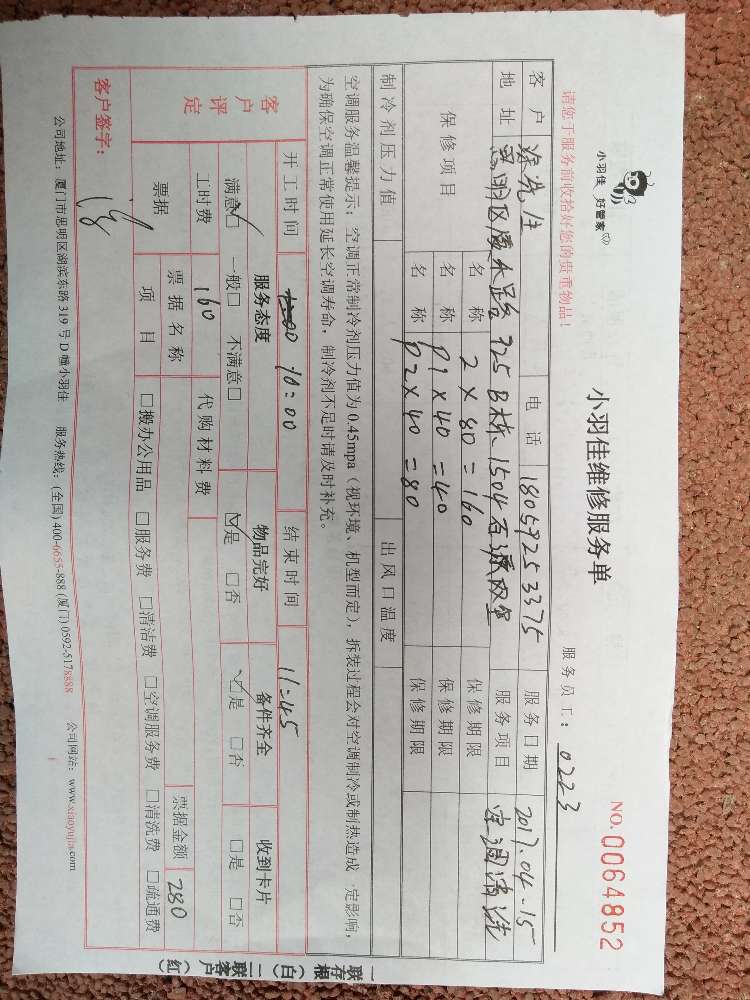 小羽佳 好管家
小羽佳维修服务单
NO.0064852
请您于服务前收拾好您的贵重物品！
服务员工：0223
客户 涂先生 电话 18059253375 服务日期 2017.04.15
地址 思明区 路325B栋、1504 服务项目 空调清洗
保修项目 名称 2×80=160 保修期限
名称 P1×40=40 保修期限
名称 P2×40=80 保修期限
制冷剂压力值 出风口温度
空调服务温馨提示：空调正常制冷剂压力值为0.45mpa（视环境、机型而定），拆装过程会对空调制冷或制热造成一定影响，
为确保空调正常使用延长空调寿命，制冷剂不足时请及时补充。
开工时间 10:00 结束时间 11:45
客户评定 服务态度 物品完好 备件齐全 收到卡片
满意□ 一般□ 不满意□ □是 □否 □是 □否 □是 □否
工时费 160 代购材料费
票据 票据名称 票据金额 280
项目 □搬办公用品 □服务费 □清洁费 □空调服务费 □清洗费 □疏通费
客户签字：
公司地址：厦门市思明区湖滨东路319号D幢小羽佳 服务热线：(全国)400-6655-888 (厦门)0592-5178888 公司网站：www.xiaoyujia.com
一联存根（白）二联客户（红）